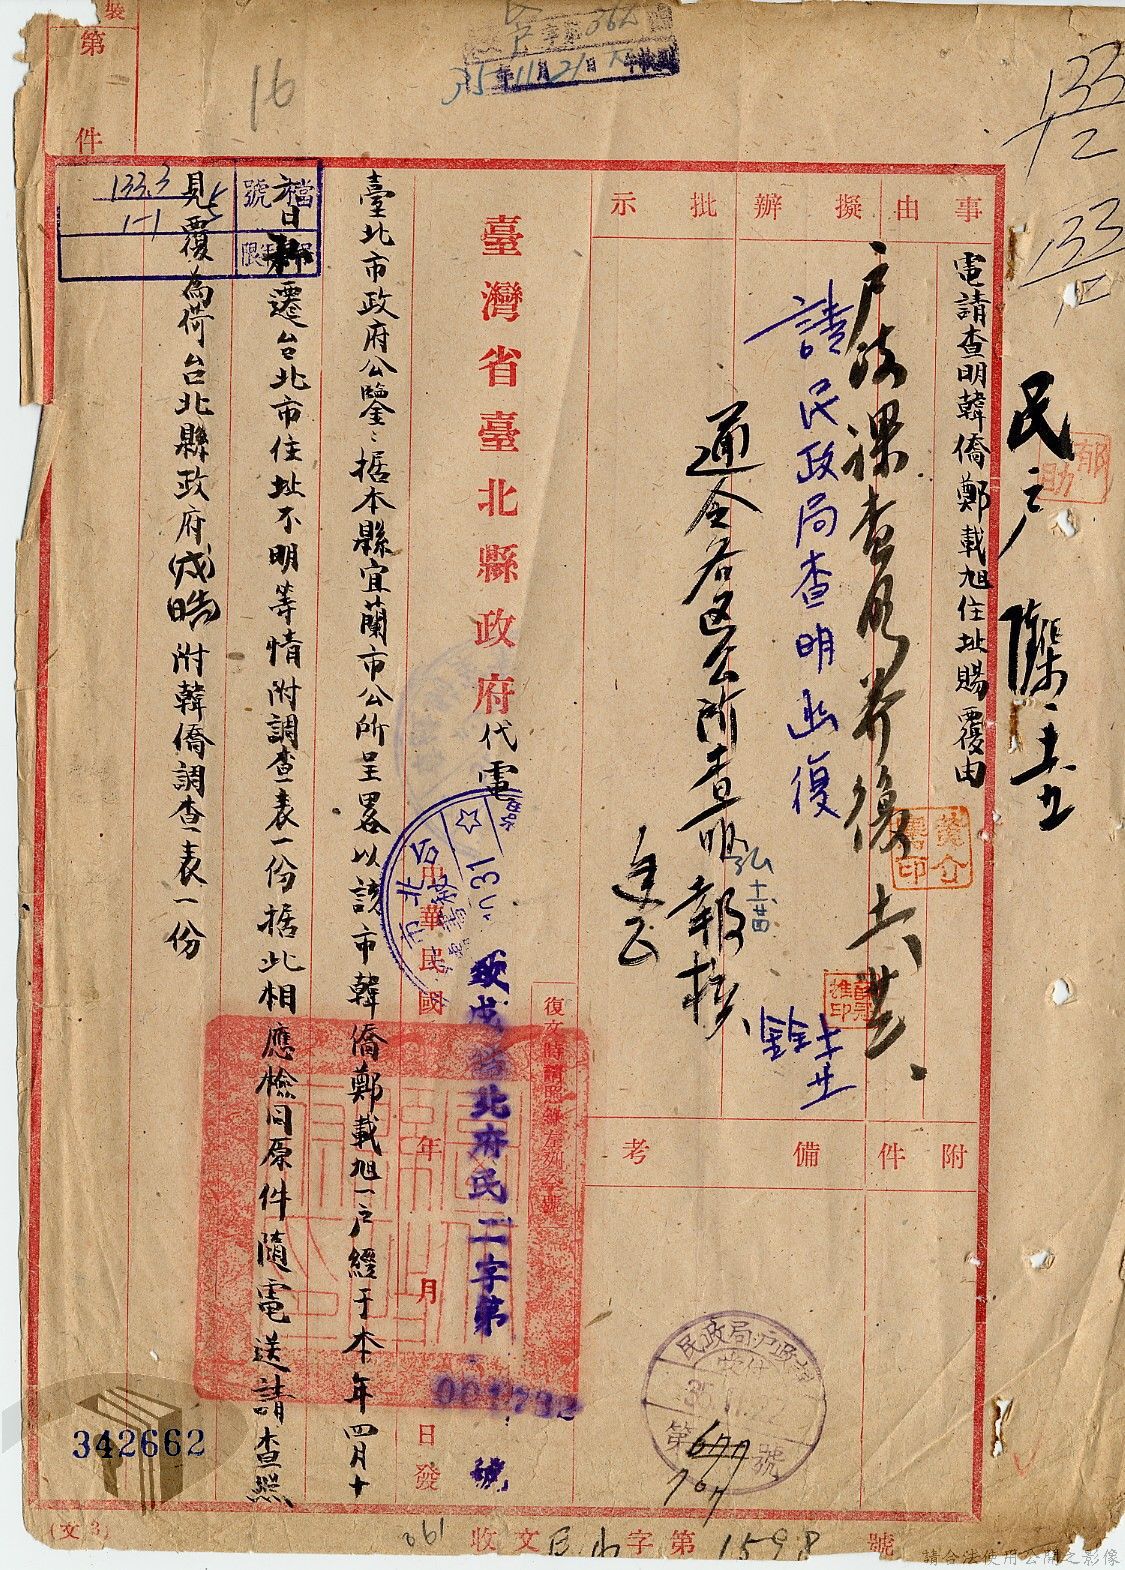 裝
第 件
16
35 11 21
133
133
民戶
事由
擬辦
批示
電請查明韓僑鄭載旭住址賜覆由
戶政課查明並復
請民政局查明函復
通令各区公所查明報核
附件
備考
臺灣省臺北縣政府代電
復文時請照錄左列字號
致戌皓北府民二字第 號
001732
中華民國 年 月 日發
臺北市政府公鑒：据本縣宜蘭市公所呈畧以該市韓僑鄭載旭一戶經于本年四月十
六日遷台北市住址不明等情附調查表一份据此相應檢同原件隨電送請查照
見覆為荷台北縣政府戌皓附韓僑調查表一份
檔號
133.3
1-1
限
民政局戶政
第 號
677
707
342662
(文3)
061
收文 字第1598號
請合法使用公開之影像